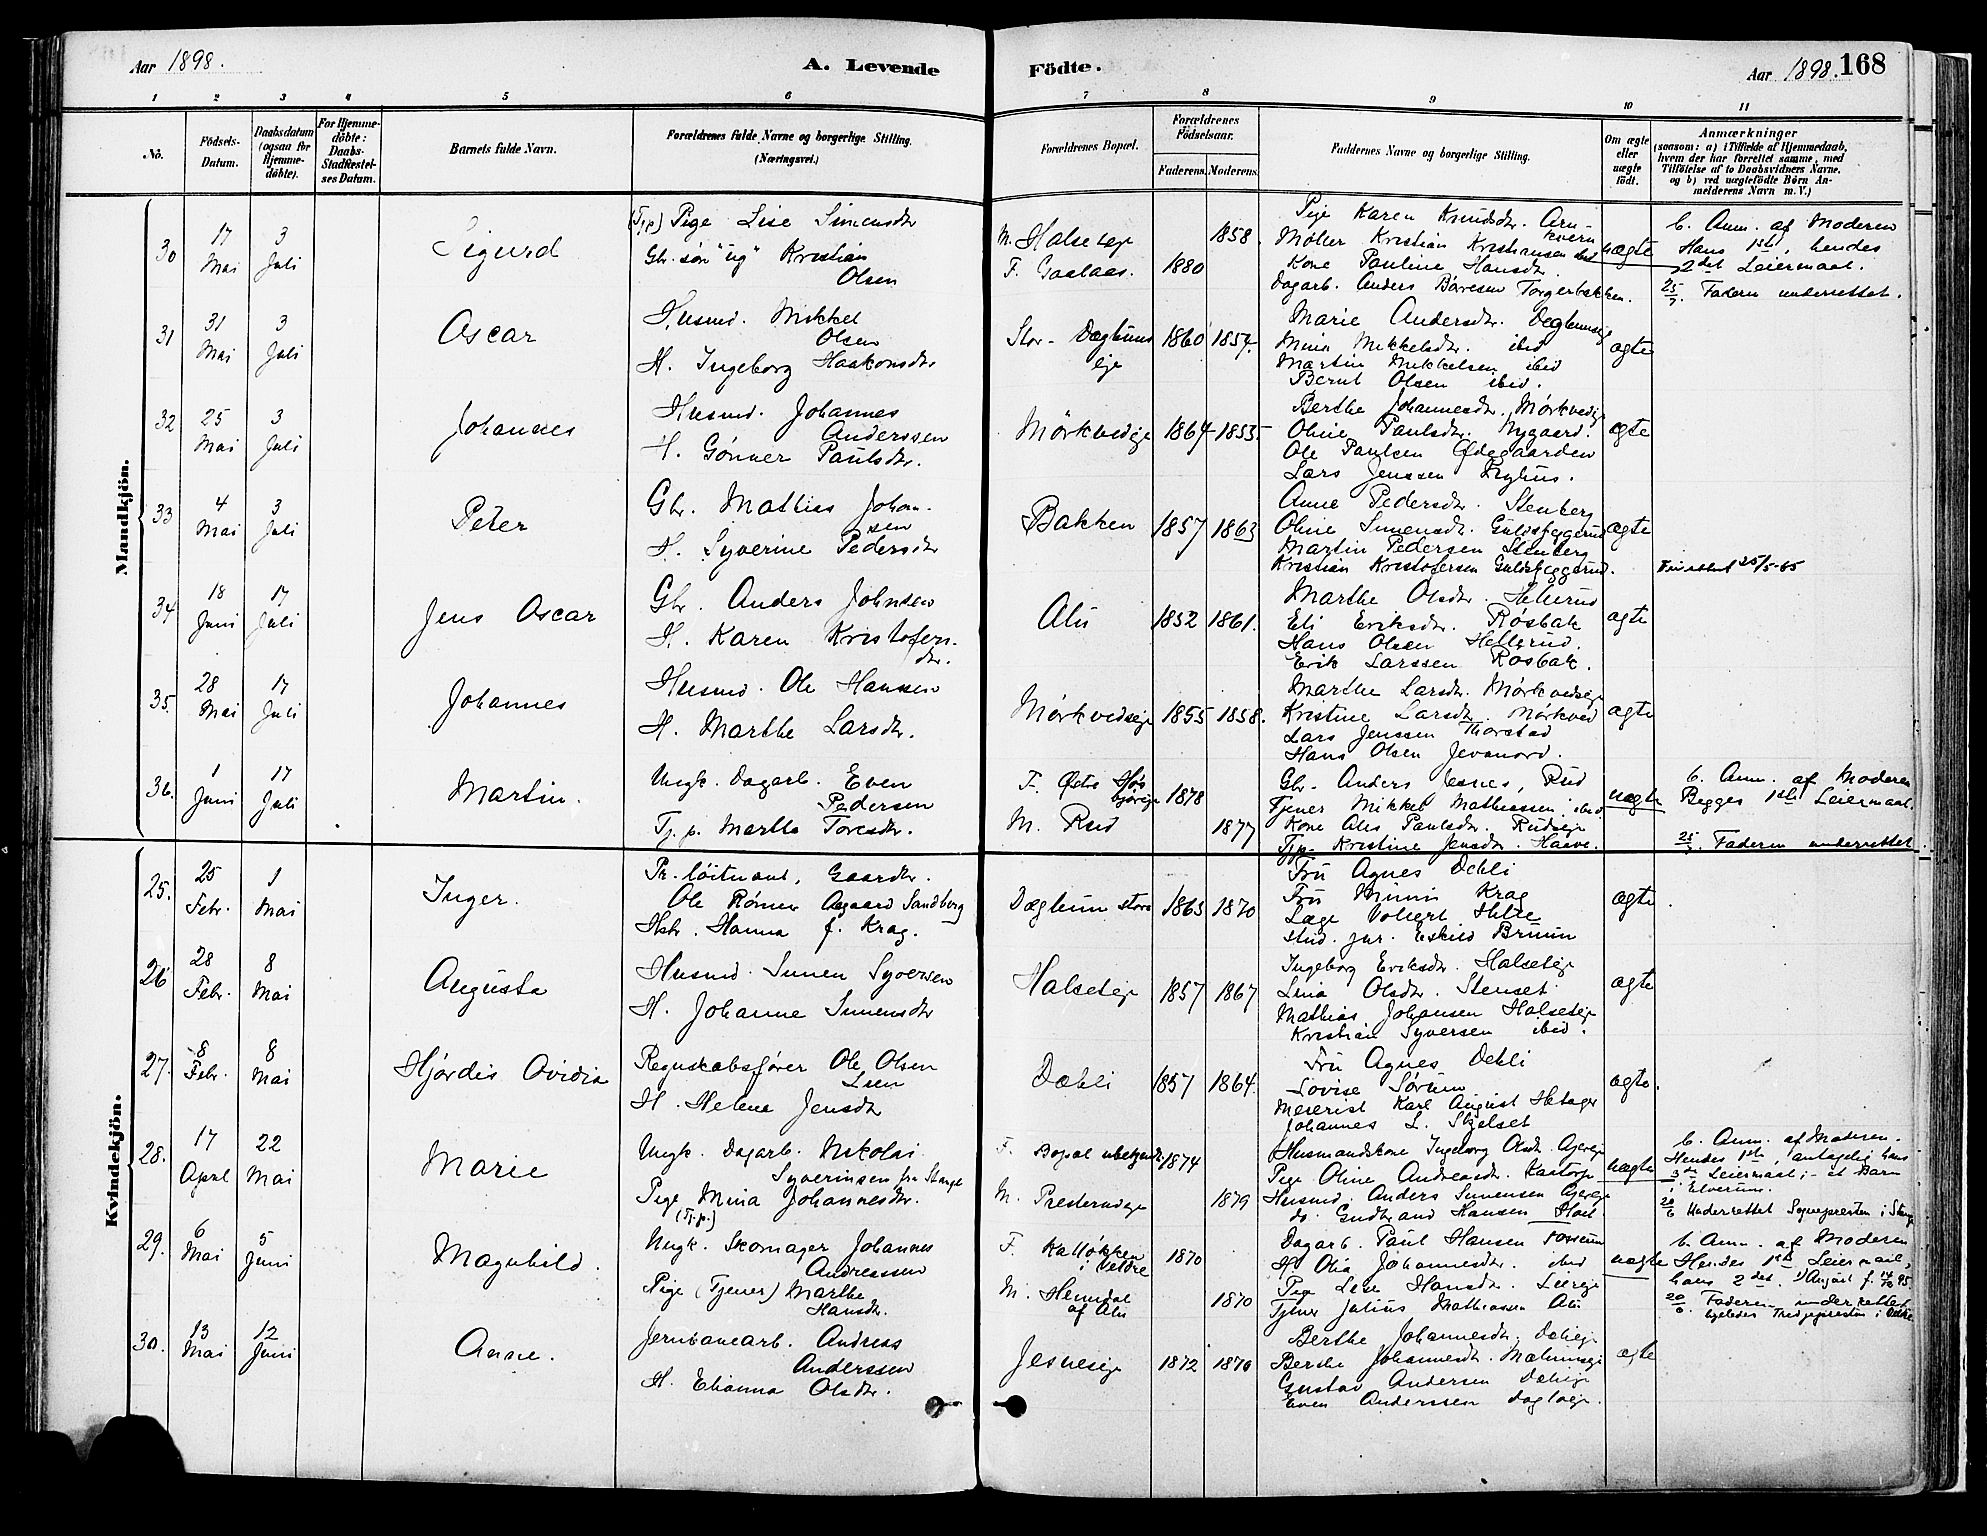 Aar 1898.
A. Levende
Födte.
Aar 1898.
168
1 2 3 4 5 6 7 8 9 10 11
No.
Födsels-Datum.
Daabsdatum (ogsaa for Hjemme-döbte).
For Hjemme-döbte: Daabs-Stadfæstel-ses Datum.
Barnets fulde Navn.
Forældrenes fulde Navne og borgerlige Stilling.
(Næringsvei.)
Forældrenes Bopæl.
Forældrenes Födselsaar.
Faderens. Moderens.
Faddernes Navne og borgerlige Stilling.
Om ægte eller uægte födt.
Anmærkninger
(saasom: a) i Tilfælde af Hjemmedaab,
hvem der har forrettet samme, med
Tilföielse af to Daabsvidners Navne,
og b) ved uægtefödte Børn An-
melderens Navn m. V.)
Mandkjön.
30 17 Mai 3 Juli Sigurd
(Tjp) Pige Lise Simensdtr
Gbr. sön "ug" Kristian
Olsen
M. Halseteje 1858.
F. Gaalaas. 1880
Pige Karen Knudsdtr. Arn-
kvern
Møller Kristian Kristiansen ibid
Kone Pauline Hansdtr.
Dagarb. Anders Børresen Torgerbakken.
uægte
b. Anm. af Moderen
Hans 1ste, hendes
2det Leiermaal.
Faderen underrettet.
31 31 Mai 3 Juli Oscar
Husmd. Mikkel
Olsen
H. Ingeborg Haakonsdtr
Stor-Dæghuns
eje
1860 1854.
Marie Andersdtr.
Mina Mikkelsdtr. ibid
Martin Mikkelsen ibid
Bernt Olsen ibid.
ægte
32 25 Mai 3 Juli Johannes
Husmd. Johannes
Anderssen
H. Gønner Paulsdtr.
Mörkvedeje 1864 1855.
Berthe Johannesdtr. Mörkvedeje
Oline Paulsdtr. Nygaard.
Ole Paulsen Ødegaarden
Lars Jenssen
ægte
33 4 Mai 3 Juli Peter
Gbr. Mathias Johan-
sen
H. Syverine Pedersdtr
Bakken 1857 1863
Anne Pedersdtr. Stenberg
Oline Simensdtr.
Martin Pedersen Stenberg
Kristian Kristofersen
ægte
34 18 Juni 17 Juli Jens Oscar
Gbr. Anders Johnsen
H. Karen Kristofers-
dtr.
Alu 1852 1861.
Marthe Olsdtr. Hellerud
Eli Eriksdtr. Røsbak
Hans Olsen Hellerud.
Erik Larssen Røsbak.
ægte
35. 28 Mai 17 Juli Johannes
Husmd. Ole Hansen
H. Marthe Larsdtr.
Mörkvedeje 1855 1858.
Marthe Larsdtr. Mörkvedeje
Kristine Larsdtr. Mörkved
Lars Jenssen Thorstad
Hans Olsen Jevanord.
ægte
36. 1 Juni 17 Juli Martin.
Ungk. Dagarb. Even
Pedersen
Tj. p. Marthe Toresdtr.
F. Østre
1878
M. Rud 1877
Gbr. Anders Rud
Tjener Mikkel Mathiassen ibid
Kone Alis Paulsdtr. Rudseje
Tjp. Kristine Jensdtr.
uægte
b. Anm. af Moderen
Begges 1ste Leiermaal.
Faderen underrettet
Kvindekjön.
25. 25 Febr. 1 Mai Inger.
Pr. löitnant, Gaardbr.
Ole Rømer Aagaard Sandberg
Hstr. Hanna f. Krag.
Dæghun store 1865 1870
Fru Agnes Dehli
Fru Mimi Krag
Læge
stud. jur. Eskild Bruun
ægte
26 28 Febr. 8 Mai Augusta
Husmd. Simen Syversen
H. Johanne Simensdtr
Halseteje 1857 1867
Ingeborg Eriksdtr. Halseteje
Lina Olsdtr. Stenset
Mathias Johansen Halseteje
Kristian Syversen ibid.
ægte
27. 8 Febr. 8 Mai Hjørdis Ovidia
Regnskabsfører Ole Olsen
Lien
H. Helene Jensdtr
Dæhli 1857 1864.
Fru Agnes Dehli
Lovise Sørum
Meierist Karl August
Johannes L. Skjelset
ægte.
28. 17 April 22 Mai Marie
Ungk. Dagarb. Nikolai
Syverinsen fra Stange
Pige Mina Johannesdtr.
(Tj.p.)
F. Bopæl ubekjendt 1874
M. Presterudeje 1879
Husmandskone Ingeborg Olsdtr.
Pige Oline Andreasdtr.
Husmd. Anders Simensen
do. Gudbrand Hansen
uægte
b. Anm. af Moderen.
Hendes 1ste, antagelig hans
3de Leiermaal; - et Barn
i Elverum.
Underrettet Sognepresten i Stange
29. 6 Mai 5 Juni Magnhild.
Ungk. Skomager Johannes
Andreassen
Pige (Tjener) Marthe
Hansdtr.
F. Kalløkken
i Veldre
1870
M. Hemdal
af Alu
1870
Dagarb. Paul Hansen Fossum
H. Olia Johannesdtr. ibid
Pige Lise Hansdtr.
Tjener Julius Mathiassen Alu
uægte
b. Anm. af Moderen
Hendes 1ste Leiermaal,
hans 2det.
Faderen underrettet
30. 13 Mai 12 Juni Anne.
Jernbanearb. Andreas
Anderssen
H. Elianna Olsdtr.
Jesneseje 1872 1870
Berthe Johannesdtr. Dæhlieje
Berthe Johannesdtr.
Gustav Andersen Dæhlieje
Even Anderssen
ægte